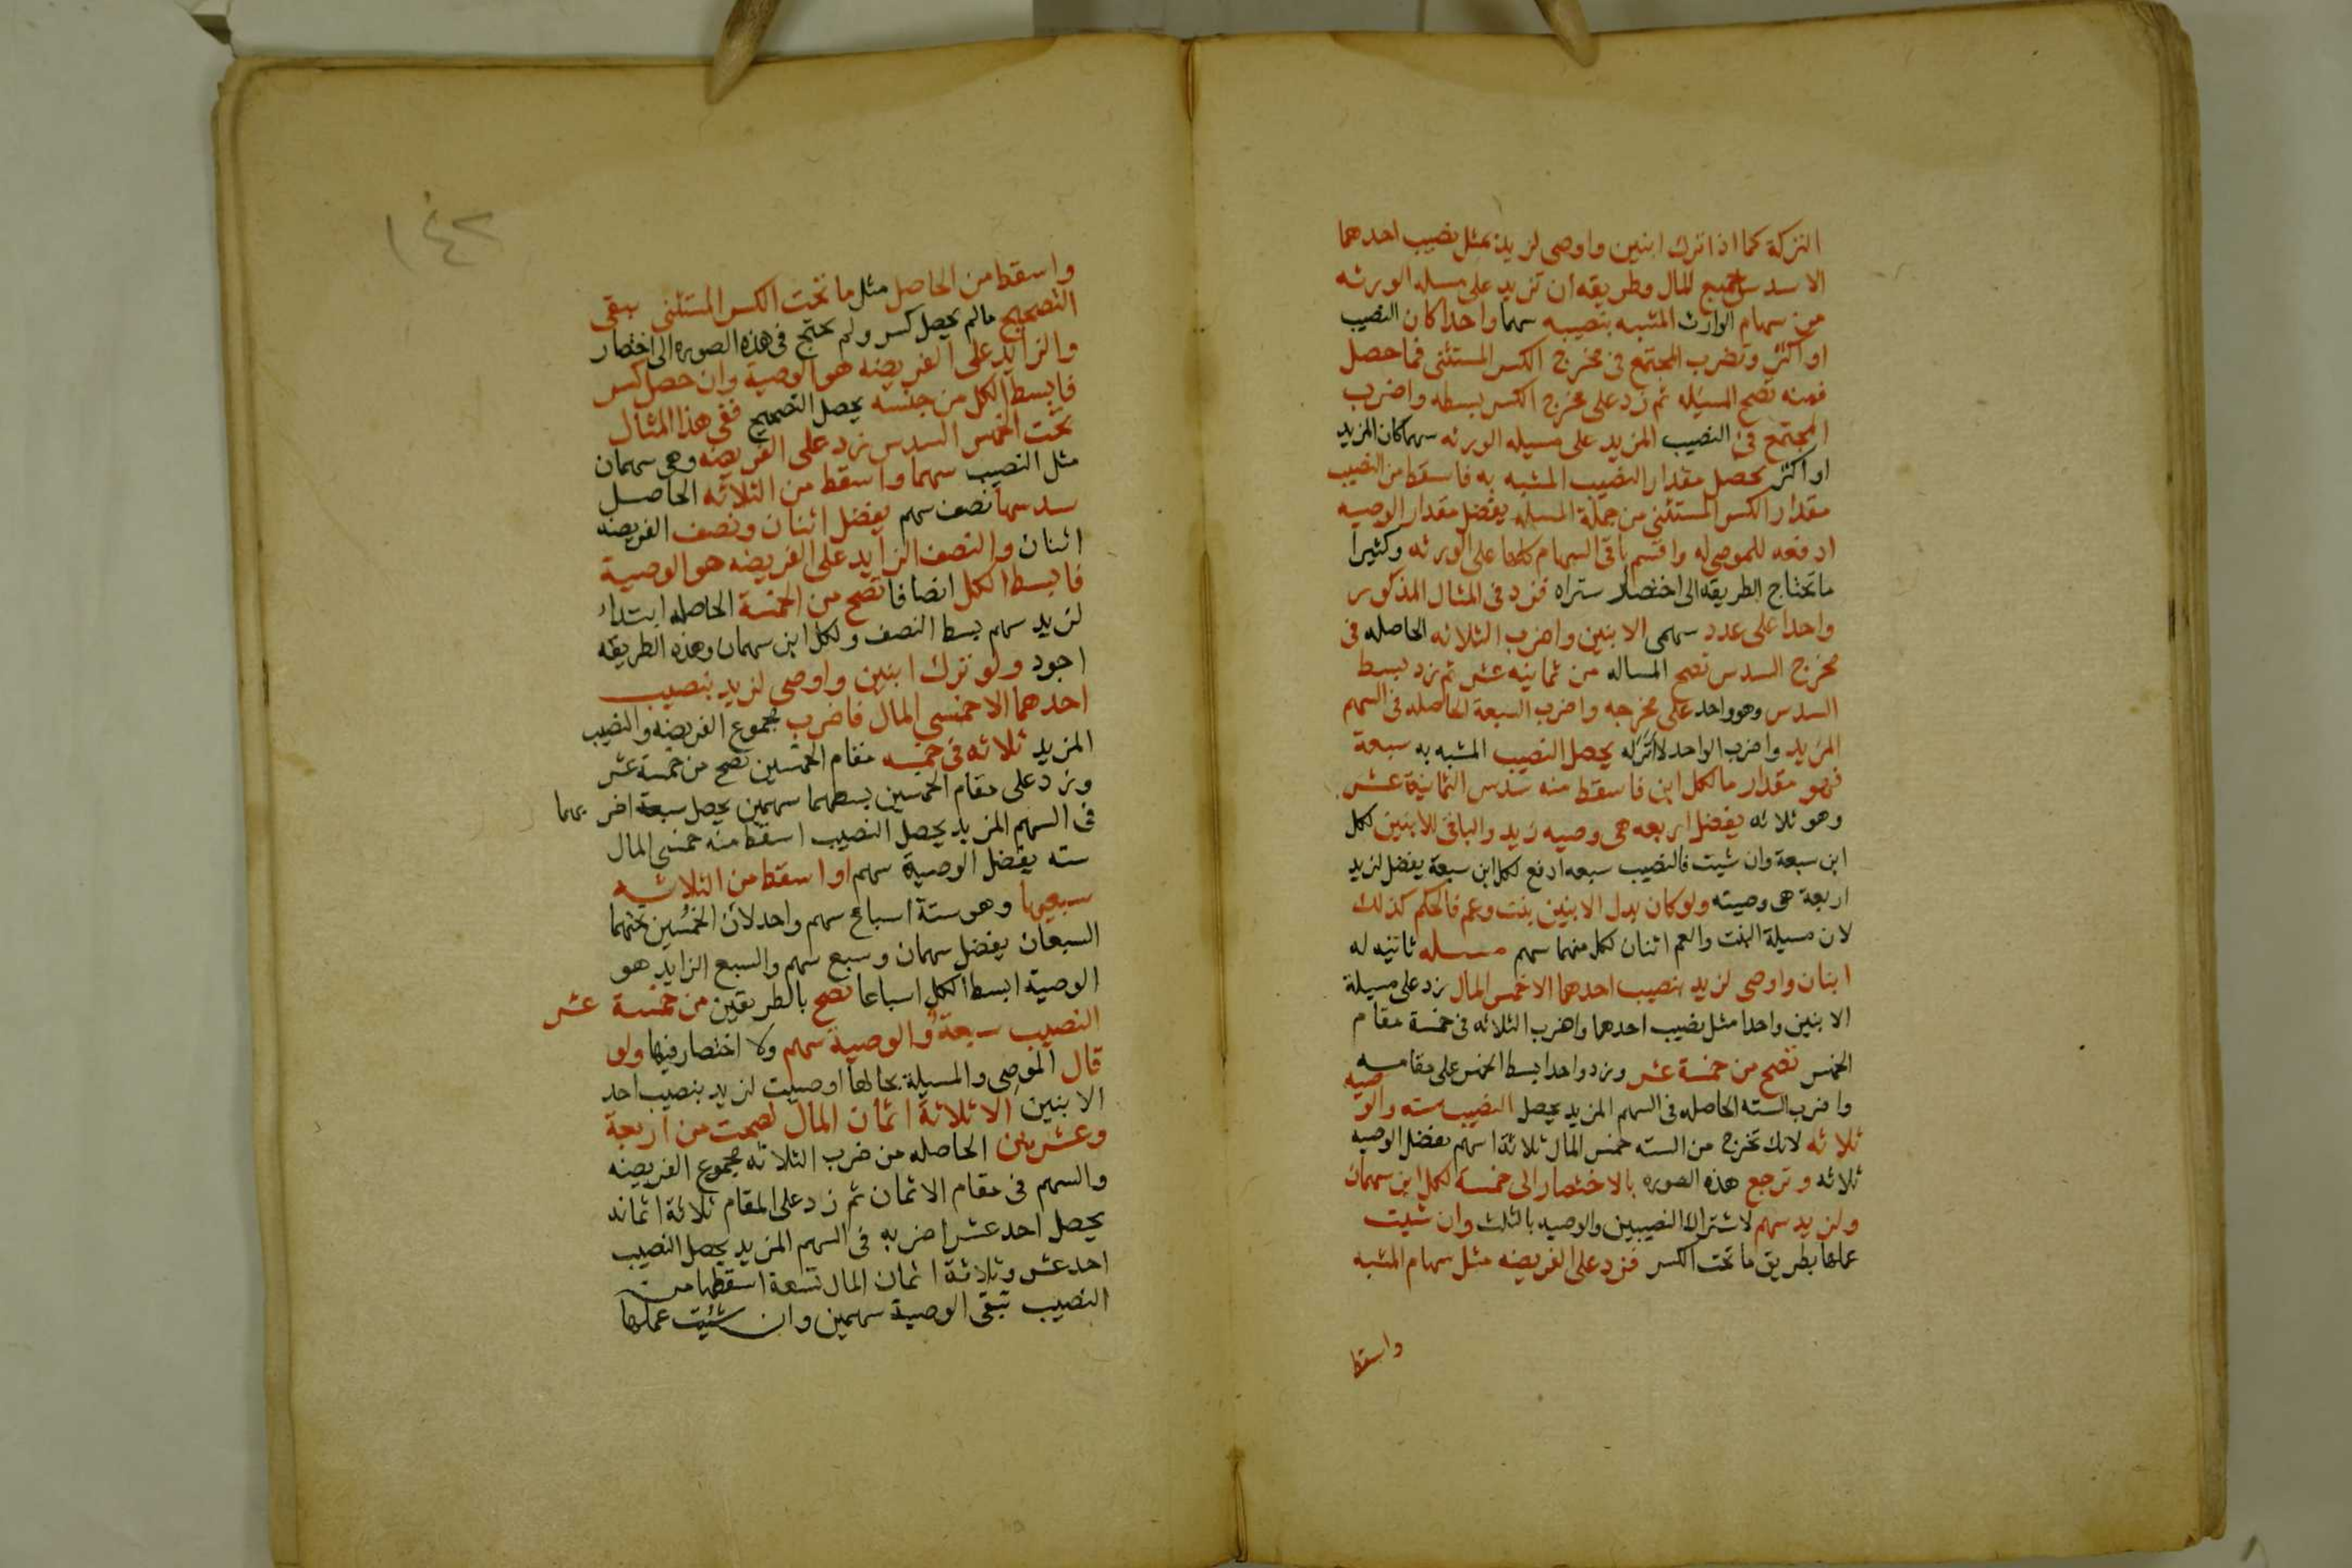 التركة كما اذا ترك ابنين واوصى لزيد بمثل نصيب احدهما
الا سدس جميع المال وطريقه ان تزيد على مسله الورثه
من سهام الوارث المشبه بنصيبه سهما واحدا كان النصيب
او اكثر وتضرب المجتمع فى مخرج الكسر المستثنى فما حصل
فمنه تصح المسئله ثم زد على مخرج الكسر بسطه واضرب
المجتمع فى النصيب المزيد على مسيله الورثه سهما كان المزيد
او اكثر يحصل مقدار النصيب المشبه به فاسقط من النصيب
مقدار الكسر المستثنى من جملة المسله يفضل مقدار الوصيه
ادفعه للموصى له واقسم باقى السهام كلها على الورثه وكثيرا
ما تحتاج الطريقه الى اختصار ستراه فزد فى المثال المذكور
واحدا على عدد سهمى الابنين واضرب الثلاثه الحاصله فى
مخرج السدس تصح المساله من ثمانيه عشر ثم زد بسط
السدس وهو واحد على مخرجه واضرب السبعة الحاصله فى السهم
المزيد واضرب الواحد لا اثر له يحصل النصيب المشبه به سبعة
فهو مقدار ما لكل ابن فاسقط منه سدس الثمانية عشر
وهو ثلاثه يفضل اربعه هى وصيه زيد والباقى للابنين لكل
ابن سبعة وان شيت فالنصيب سبعه ادفع لكل ابن سبعة يفضل لزيد
اربعة هى وصيته ولو كان بدل الابنين بنت وعم فالحكم كذلك
لان مسيلة البنت والعم اثنان لكل منهما سهم مسله ثانيه له
ابنان واوصى لزيد بنصيب احدهما الا خمس المال زد على مسيلة
الابنين واحدا مثل نصيب احدهما واضرب الثلاثه فى خمسة مقام
الخمس تصح من خمسة عشر وزد واحدا بسط الخمس على مقامه
واضرب السته الحاصله فى السهم المزيد يحصل النصيب سته والوصيه
ثلاثه لانك تخرج من السته خمس المال ثلاثة اسهم يفضل الوصيه
ثلاثه وترجع هذه الصوره بالاختصار الى خمسة لكل ابن سهمان
ولزيد سهم لاشتراك النصيبين والوصيه بالثلث وان شيت
عملها بطريق ما تحت الكسر فزد على الفريضه مثل سهام المشبه
واسقط
١٤٢
واسقط من الحاصل مثل ما تحت الكسر المستثنى يبقى
التصحيح مالم يحصل كسر ولم يحتج فى هذه الصوره الى اختصار
والزايد على الفريضه هو الوصية وان حصل كسر
فابسط الكل من جنسه يحصل التصحيح ففى هذا المثال
تحت الخمس السدس زد على الفريضه وهى سهمان
مثل النصيب سهما واسقط من الثلاثه الحاصل
سدسها نصف سهم يفضل اثنان ونصف الفريضه
اثنان والنصف الزايد على الفريضه هو الوصية
فابسط الكل انصافا تصح من الخمسة الحاصله ابتداء
لزيد سهم بسط النصف ولكل ابن سهمان وهذه الطريقه
اجود ولو ترك ابنين واوصى لزيد بنصيب
احدهما الا خمسى المال فاضرب مجموع الفريضه والنصيب
المزيد ثلاثه فى خمسه مقام الخمسين تصح من خمسة عشر
وزد على مقام الخمسين بسطهما سهمين يحصل سبعة اضربهما
فى السهم المزيد يحصل النصيب اسقط منه خمسى المال
سته يفضل الوصية سهم او اسقط من الثلاثه
سبعيها وهو ستة اسباع سهم واحد لان الخمسين تحتهما
السبعان يفضل سهمان وسبع سهم والسبع الزايد هو
الوصية ابسط الكل اسباعا تصح بالطريقين من خمسة عشر
النصيب سبعة والوصية سهم ولا اختصار فيها ولو
قال الموصى والمسيلة بحالها اوصيت لزيد بنصيب احد
الابنين الا ثلاثة اثمان المال لصحت من اربعة
وعشرين الحاصله من ضرب الثلاثه مجموع الفريضه
والسهم فى مقام الاثمان ثم زد على المقام ثلاثة اثمانه
يحصل احد عشر اضربه فى السهم المزيد يحصل النصيب
احد عشر وثلاثة اثمان المال تسعة اسقطها من
النصيب تبقى الوصية سهمين وان شئت عملها